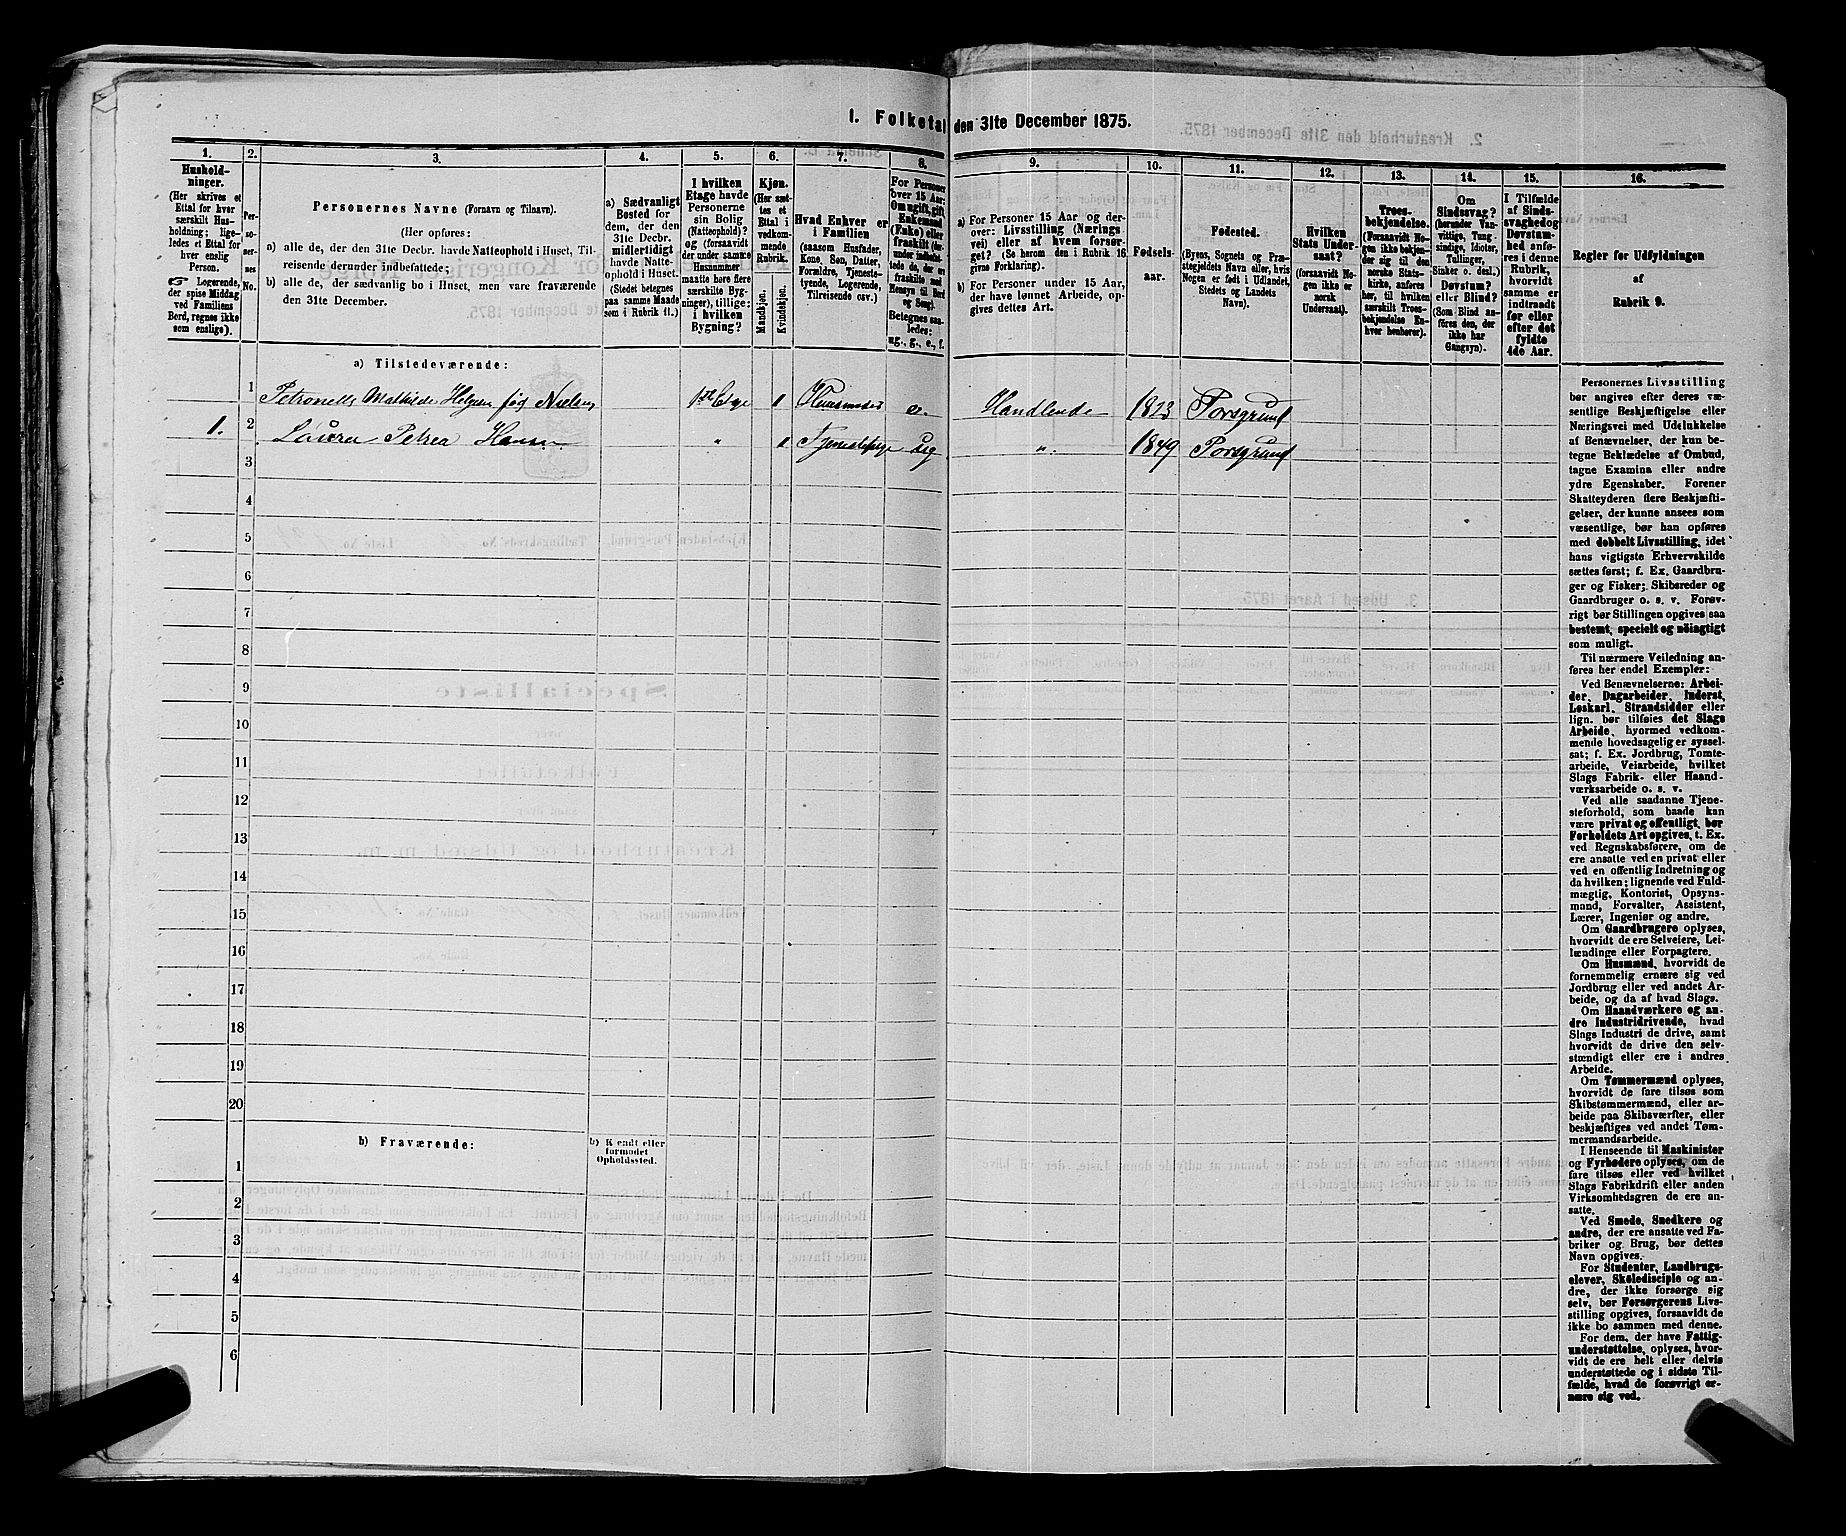 1. Folketal den 31te December 1875.
1.
Hushold-
ninger.
(Her skrives et
Ettal for hver
særskilt Hus-
holdning; lige-
ledes et Ettal for
hver enslig
Person.
Logerende,
der spise Middag
ved Familiens
Bord, regnes ikke
som enslige).
2.
Per-
so-
ner-
nes
No.
3.
Personernes Navne (Fornavn og Tilnavn).
(Her opføres:
a) alle de, der den 31te Decbr. havde Natteophold i Huset, Til-
reisende derunder indbefattede;
b) alle de, der sædvanlig bo i Huset, men vare fraværende
den 31te December.
4.
a) Sædvanligt
Bosted for
dem, der den
31te Decbr.
midlertidigt
havde Natte-
ophold i Huset.
(Stedet betegnes
paa samme Maade
som i Rubrik 11.)
5.
I hvilken
Etage havde
Personerne
sin Bolig
(Natteophold)?
og (forsaavidt
der under samme
Husnummer
maatte høre flere
særskilte Byg-
ninger), tillige:
i hvilken
Bygning?
6.
Kjøn.
(Her sæt-
tes et
Ettal i
vedkom-
mende
Rubrik.
Mandkjøn.
Kvindekjøn.
7.
Hvad Enhver er
i Familien
(saasom Husfader,
Kone, Søn, Datter,
Forældre, Tjeneste-
tyende, Logerende,
Tilreisende osv.)
8.
For Personer
over 15 Aar:
Om ugift, gift,
Enkemand
(Enke) eller
fraskilt
Betegnes saa-
ledes:
ug., g., e., f.
9.
a) For Personer 15 Aar og der-
over: Livsstilling (Nærings
vei) eller af hvem forsør-
get? (Se herom den i Rubrik 16
givne Forklaring).
b) For Personer under 15 Aar,
der have lønnet Arbeide, op-
gives dettes Art.
10.
Fødsels-
aar.
11.
Fødested.
(Byens, Sognets og Præ-
stegjeldets Navn eller, hvis
Nogen er født i Udlandet,
Stedets og Landets
Navn).
12.
Hvilken
Stats Under-
saat?
(forsaavidt No-
gen ikke er
norsk
Undersaat).
13.
Troes-
bekjendelse.
(Forsaavidt No-
gen ikke bekjen-
der sig til den
norske Stats-
kirke, anføres
her, til hvilken
særskilt Troes-
bekjendelse En-
hver henhører).
14.
Om
Sindssvag?
(herunder Van-
vittige, Tung-
sindige, Idioter,
Tullinger,
Sinker o. desl.)
Døvstum?
eller Blind?
(Som Blind an-
føres den, der
ikke har
Gangsyn).
15.
I Tilfælde
af Sinds-
svaghed og
Døvstum-
hed anfø-
res i denne
Rubrik,
hvorvidt
samme er
indtraadt
før eller
efter det
fyldte
4de Aar.
16.
Regler for Udfyldningen
af
Rubrik 9.
a) Tilstedeværende:
1 Petronelle Mathilde Helgesen fød Nielsen 1ste Etage 1 Huusmoder e. Handlende 1823 Porsgrund
1. 2 Laura Petrea Hansen " 1 Tjenestepige ug " 1849 Porsgrund
3
4
5
6
7
8
9
10
11
12
13
14
15
16
17
18
19
20
b) Fraværende:
b) Kjendt eller
formodet
Opholdssted.
1
2
3
4
5
6
Personernes Livsstilling
bør angives efter deres væ-
sentlige Beskjæftigelse eller
Næringsvei med Udelukkelse
af Benævnelser, der kun be-
tegne Beklædelse af Ombud,
tagne Examina eller andre
ydre Egenskaber. Forener
Skatteyderen flere Beskjæfti-
gelser, der kunne ansees som
væsentlige, bør han opføres
med dobbelt Livsstilling, idet
hans vigtigste Erhvervskilde
sættes først; f. Ex. Gaardbru-
ger og Fisker; Skibsreder og
Gaardbruger o. s. v. Forøv-
rigt bør Stillingen opgives saa
bestemt, specielt og nøiagtigt
som muligt.
Til nærmere Veiledning an-
føres her endel Exempler:
Ved Benævnelserne: Arbei-
der, Dagarbeider, Inderst,
Løskarl, Strandsidder eller
lign. bør tilføies det Slags
Arbeide, hvormed vedkom-
mende hovedsagelig er syssel-
sat; f. Ex. Jordbrug, Tomte-
arbeide, Veiarbeide, hvilket
Slags Fabrik- eller Haand-
værksarbeide o. s. v.
Ved alle saadanne Tjene-
steforhold, som baade kan
være privat og offentligt, bør
Forholdets Art opgives, t. Ex.
ved Regnskabsførere, om de
ere ansatte ved en privat eller
ved en offentlig Indretning og
da hvilken; lignende ved Fuld-
mægtig, Kontorist, Opsyns-
mand, Forvalter, Assistent,
Lærer, Ingeniør og andre.
Om Gaardbrugere oplyses,
hvorvidt de ere Selveiere, Lei-
lændinge eller Forpagtere.
Om Husmænd, hvorvidt de
fornemmelig ernære sig ved
Jordbrug eller ved andet Ar-
beide, og da af hvad Slags.
Om Haandværkere og an-
dre Industridrivende, hvad
Slags Industri de drive, samt
hvorvidt de drive den selv-
stændigt eller ere i andres
Arbeide.
Om Tømmermænd oplyses,
hvorvidt de fare tilsøs som
Skibstømmermænd, eller ar-
beide paa Skibsværfter, eller
beskjæftiges ved andet Tøm-
mermandsarbeide.
I Henseende til Maskinister
og Fyrbødere oplyses, om de
fare tilsøs eller ved hvilket
Slags Fabrikdrift eller anden
Virksomhedsgren de ere an-
satte.
Ved Smede, Snedkere og
andre, der ere ansatte ved Fa-
briker og Brug, bør dettes
Navn opgives.
For Studenter, Landbrugs-
elever, Skoledisciple og an-
dre, der ikke forsørge sig
selv, bør Forsørgerens Livs-
stilling opgives, forsaavidt de
ikke bo sammen med denne.
For dem, der have Fattig-
understøttelse, oplyses, hvor-
vidt de ere helt eller delvis
understøttede og i sidste Til-
fælde, hvad de forøvrigt er-
nære sig ved.